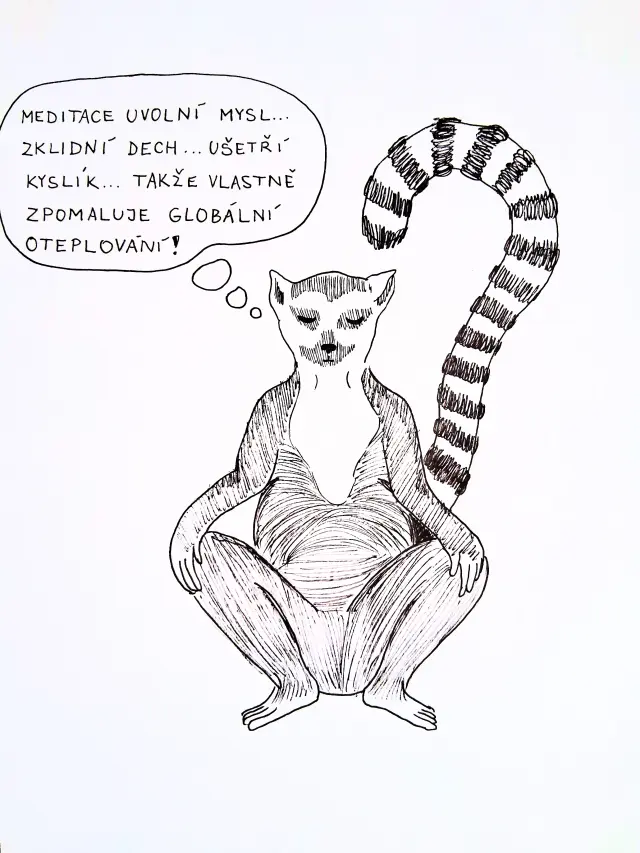 MEDITACE UVOLNÍ MYSL...
ZKLIDNÍ DECH... UŠETŘÍ
KYSLÍK... TAKŽE VLASTNĚ
ZPOMALUJE GLOBÁLNÍ
OTEPLOVÁNÍ!